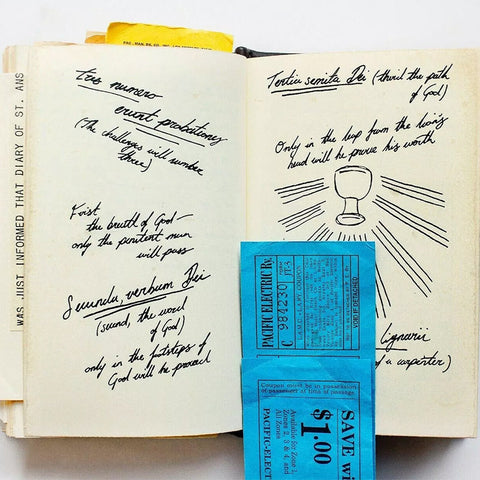 tres numero
erunt probationes
(The challenges will number
three)
First
the breath of God—
only the penitent man
will pass
Secunda, verbum Dei
(second, the word
of God)
only in the footsteps of
God will he proceed
WAS JUST INFORMED THAT DIARY OF ST. ANS
Tertia semita Dei (third the path
of God)
Only in the leap from the lion's
head will he prove his worth
Lignarii
of a carpenter)
PACIFIC ELECTRIC Ry.
C 984230
VOID IF DETACHED
Coupon must be in possession
of passenger at time of passage
SAVE wi
$1.00
Available for Zone 1,
Zones 2, 3 & 4, and
All Zones
PACIFIC-ELECT